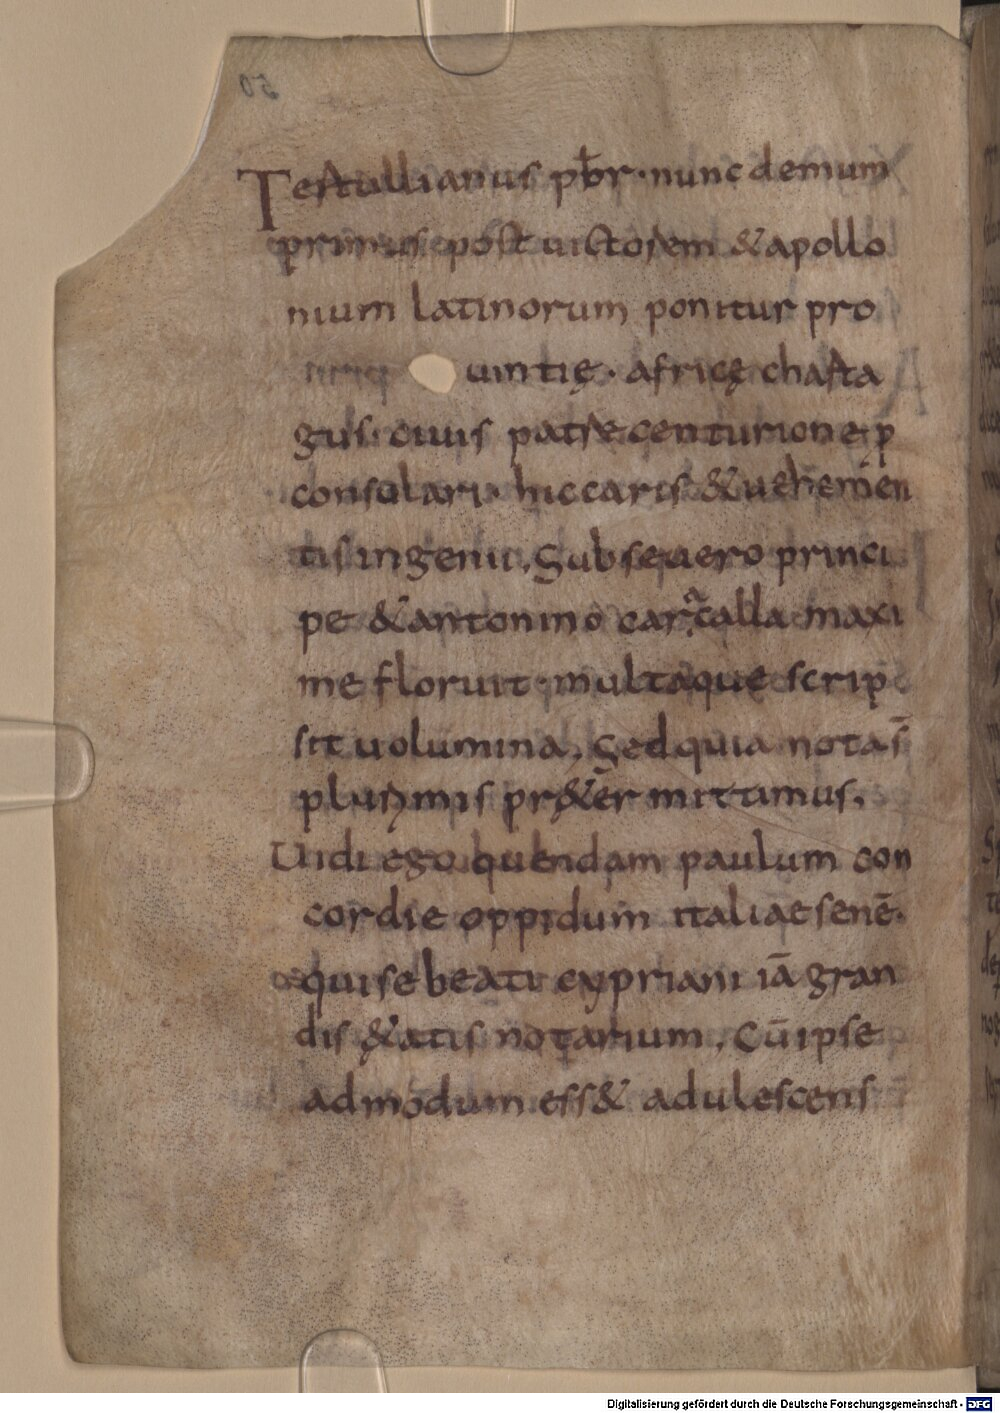 Tertullianus pb̄r · nunc demum
primus post uictorem & apollo
nium latinorum ponitur pro
uintię · africę charta
gus ciuis patre centurione, p̄
consolari · hic caris & uehemen
tis ingenii, Sub seuero princi
pe & antonino caracalla maxi
me floruit · multaque scrip
sit uolumina, Sed quia nota s̄
plurimis pr&̨er mittimus,
Uidi ego quendam paulum con
cordie oppidum italiae senē ·
qui se beati cypriani iā gran
dis &̨atis notarium, Cū ipse
admodum ess& adulescens
Digitalisierung gefördert durch die Deutsche Forschungsgemeinschaft - DFG